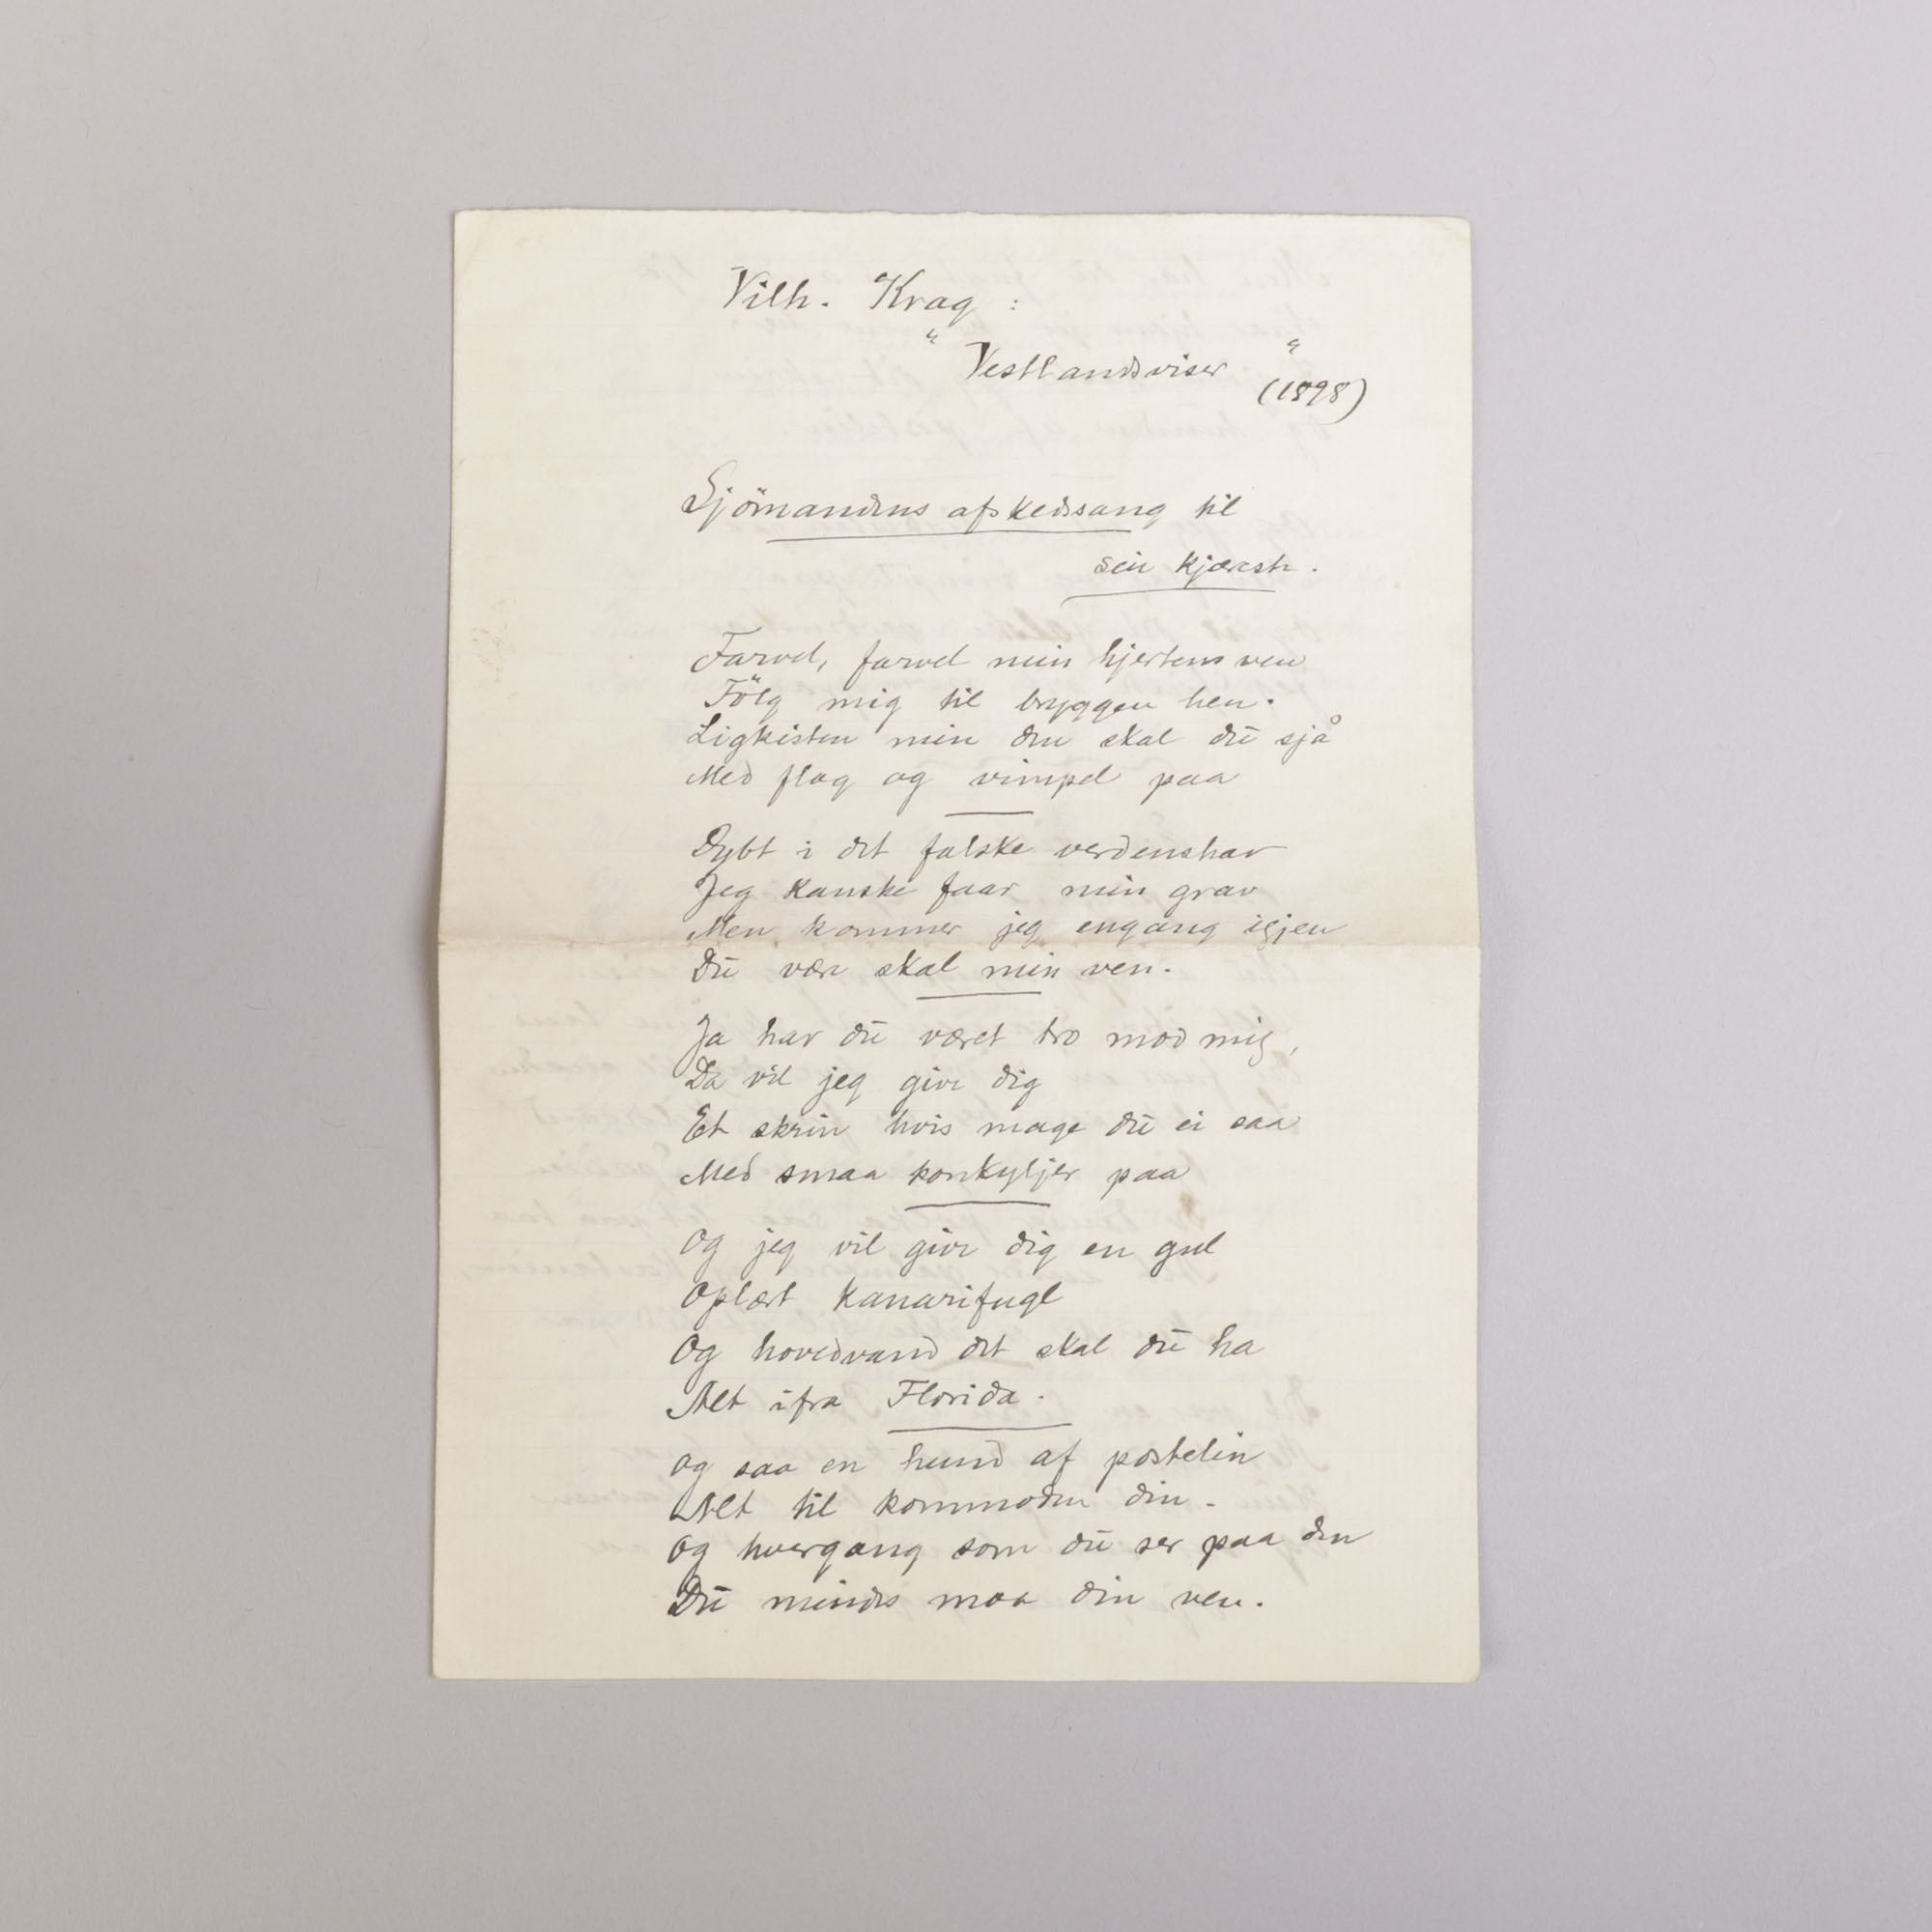 Vilh. Krag :
"Vestlandsviser"
(1898)
Sjömandens afskedssang til
sin kjæreste.
Farvel, farvel min hjertens ven
Fölg mig til bryggen hen.
Ligkisten min den skal du sjå
Med flag og vimpel paa
Dybt i det falske verdenshav
Jeg kanske faar min grav
Men kommer jeg engang igjen
Du være skal min ven.
Ja har du været tro mod mig,
Da vil jeg give dig
Et skrin hvis mage du ei saa
Med smaa konkyljer paa
Og jeg vil give dig en gul
Oplært kanarifugl
Og hovedvand det skal du ha
Alt ifra Florida.
Og saa en hund af postelin
Alt til kommoden din.
Og hvergang som du ser paa den
Du mindes maa din ven.